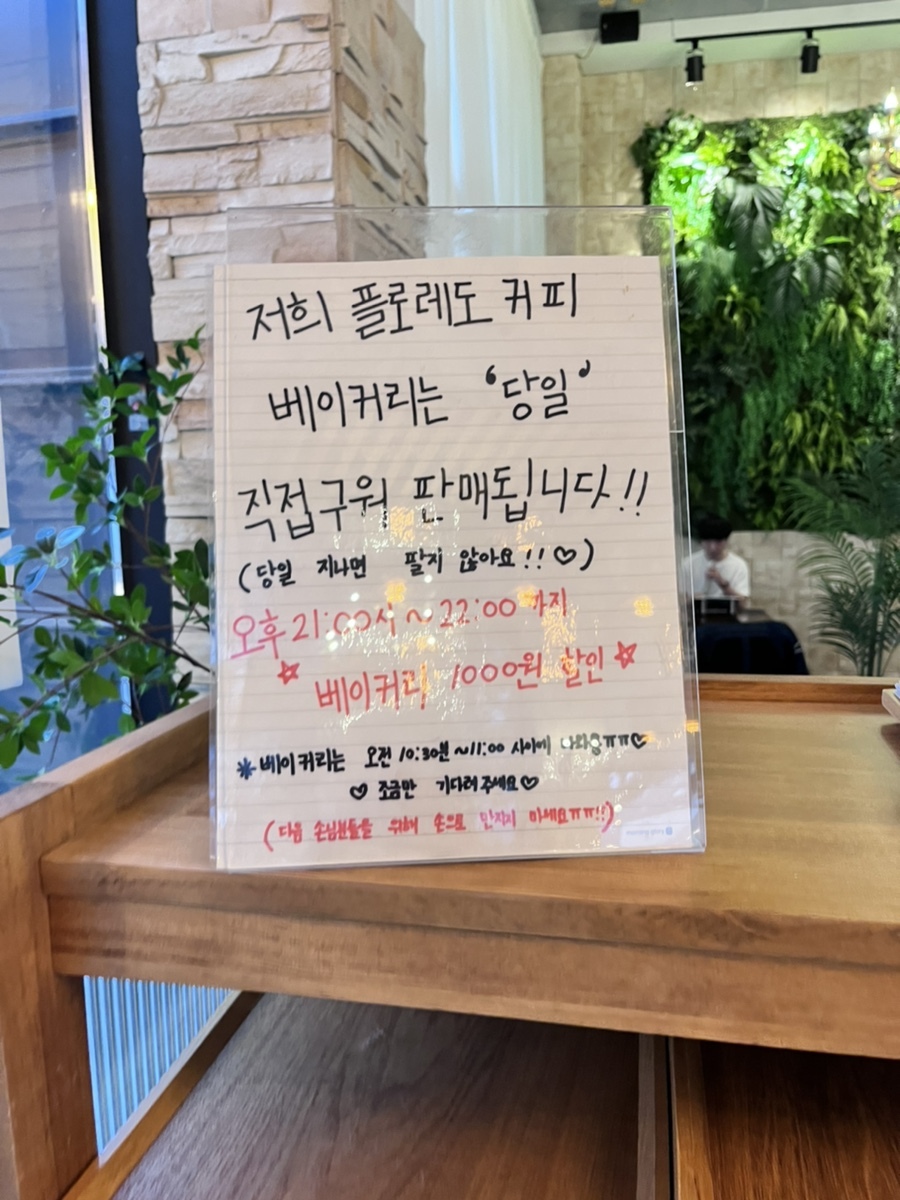 저희 플로레도 커피
베이커리는 '당일'
직접구워 판매됩니다!!
(당일 지나면 팔지 않아요!!♡)
오후 21:00시~22:00까지
☆베이커리 1000원 할인☆
*베이커리는 오전 10:30분~11:00 사이에 나와용ㅠㅠ♡
♡조금만 기다려주세요♡
(다음 손님분들을 위해 손으로 만지지 마세요ㅠㅠ!!)